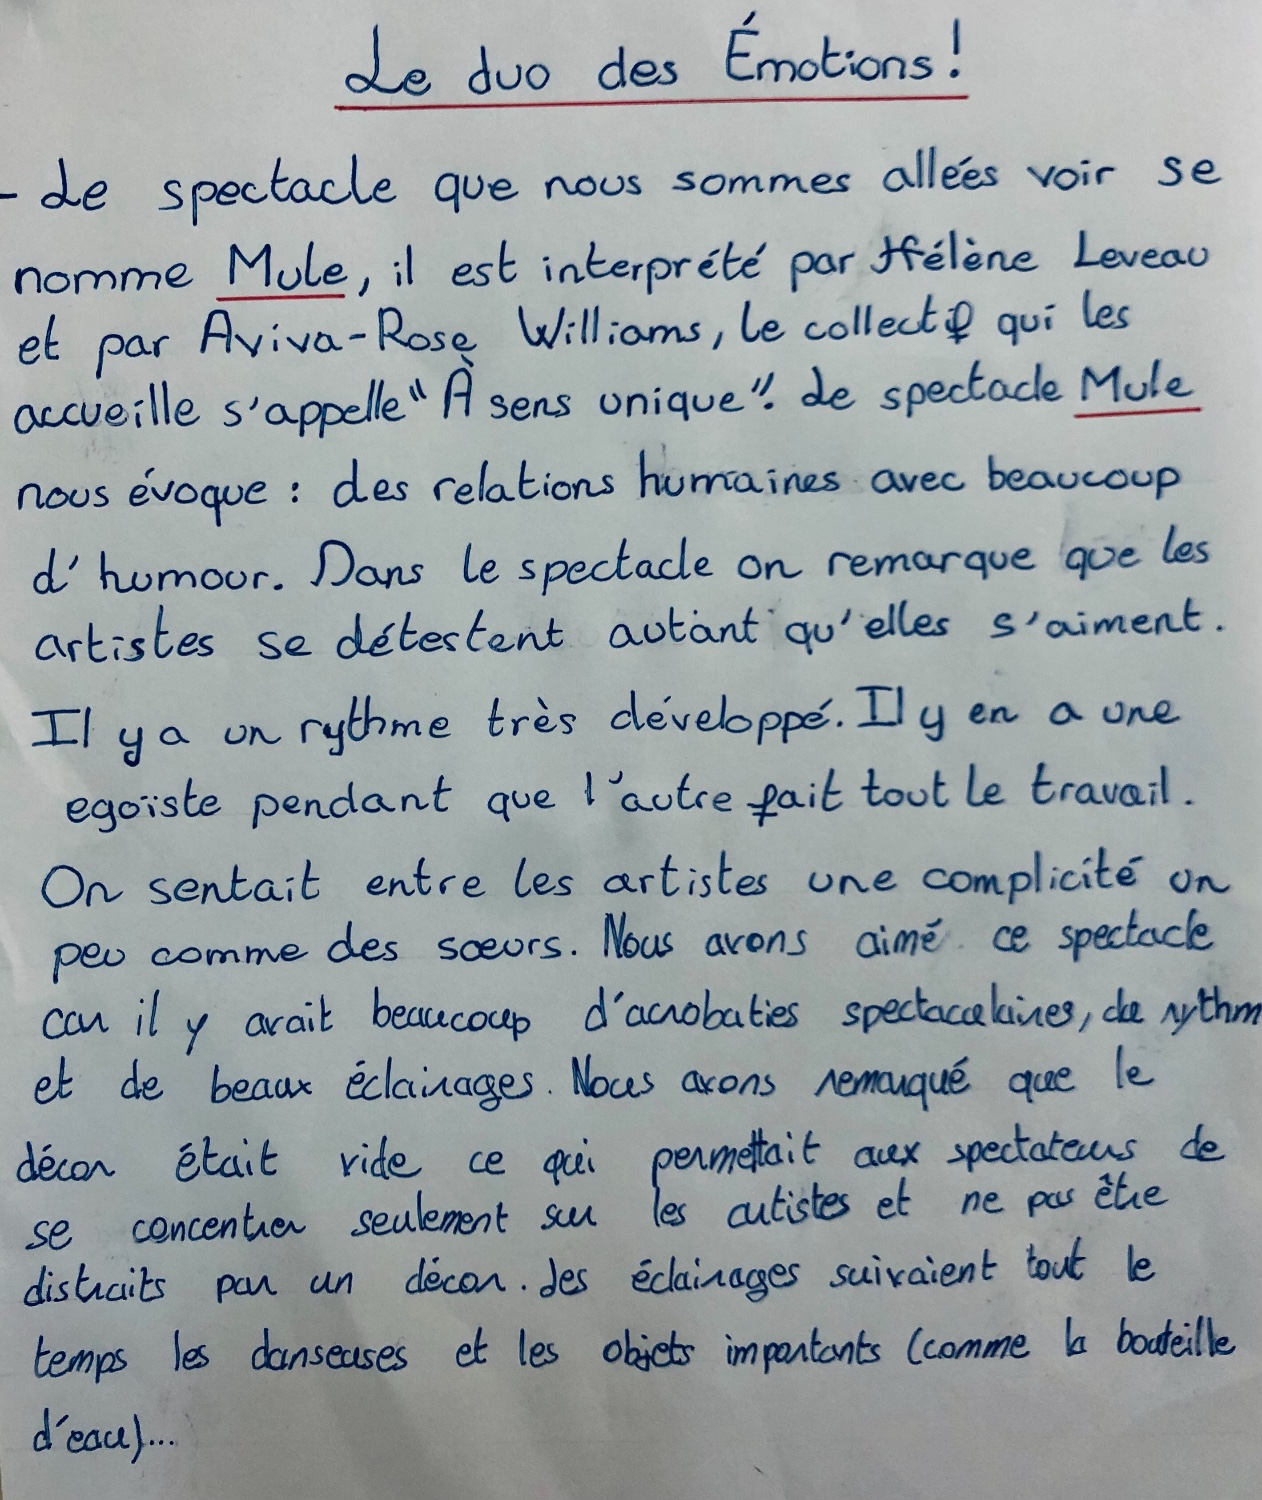 Le duo des Émotions !
- Le spectacle que nous sommes allées voir se
nomme Mule, il est interprété par Hélène Leveau
et par Aviva-Rose Williams, le collectif qui les
accueille s'appelle "À sens unique". Le spectacle Mule
nous évoque : des relations humaines avec beaucoup
d'humour. Dans le spectacle on remarque que les
artistes se détestent autant qu'elles s'aiment.
Il y a un rythme très développé. Il y en a une
egoïste pendant que l'autre fait tout le travail.
On sentait entre les artistes une complicité un
peu comme des sœurs. Nous avons aimé ce spectacle
car il y avait beaucoup d'acrobaties spectaculaires, de rythm
et de beaux éclairages. Nous avons remarqué que le
décor était vide ce qui permettait aux spectateurs de
se concentrer seulement sur les artistes et ne pas être
distraits par un décor. Les éclairages suivaient tout le
temps les danseuses et les objets importants (comme la bouteille
d'eau)...